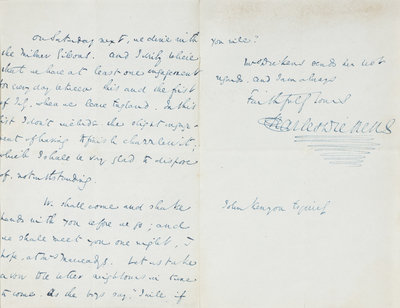 on Saturday next, we dine with
the Milner Gibsons. And I verily believe
that we have at least one engagement
for every day between this and the first
of July, when we leave England. In this
list I don't include the slight engage-
ment of having to finish Chuzzlewit,
which I shall be very glad to dispose
of, notwithstanding.
We shall come and shake
hands with you before we go; and
we shall meet you one night, I
hope, at
let us take
the other neighbours in
to come. As the boys say, "I will if
you will!"
Mrs Dickens sends her best
regards, and I am always
Faithfully Yours
Charles Dickens
John Kenyon Esquire